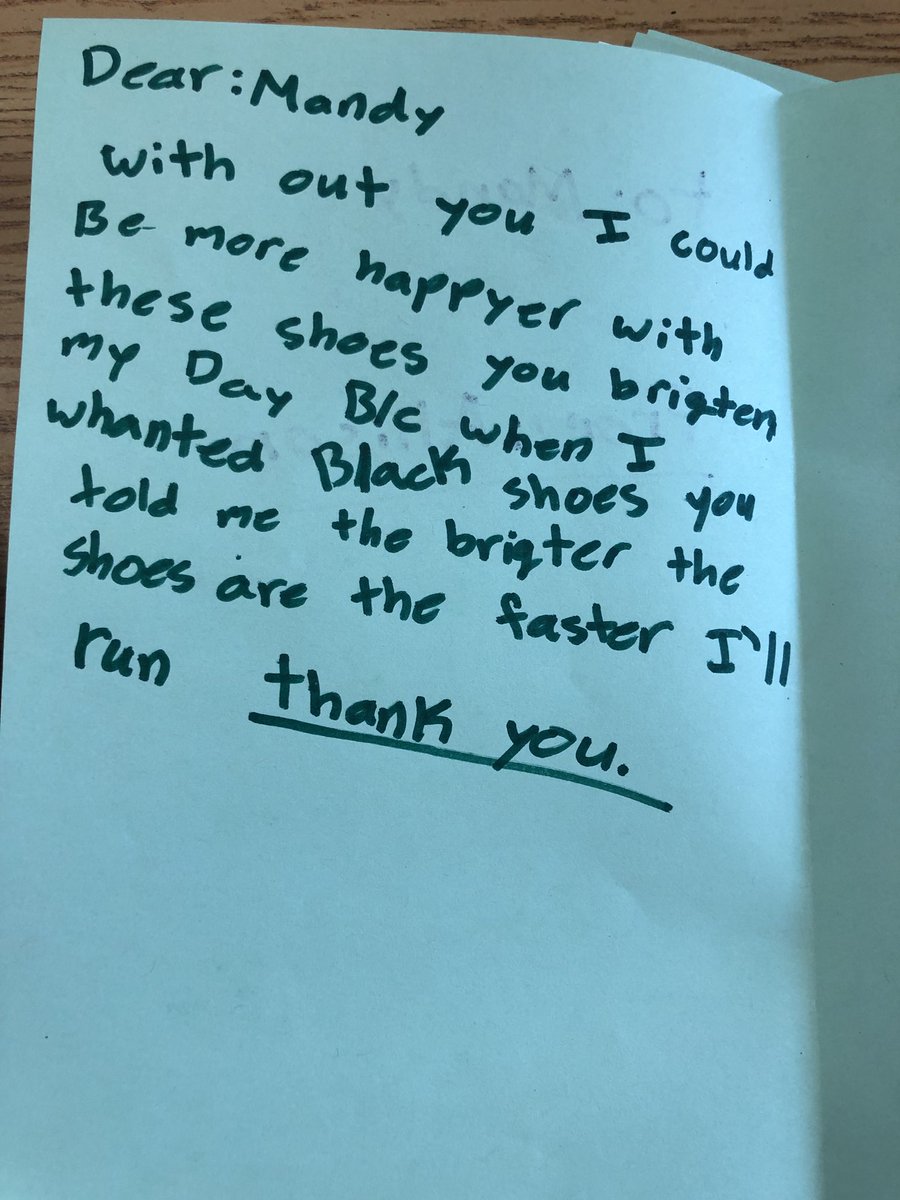 Dear: Mandy
with out you I could
Be more happyer with
these shoes you brigten
my Day B/c when I
whanted Black shoes you
told me the brigter the
shoes are the faster I'll
run thank you.